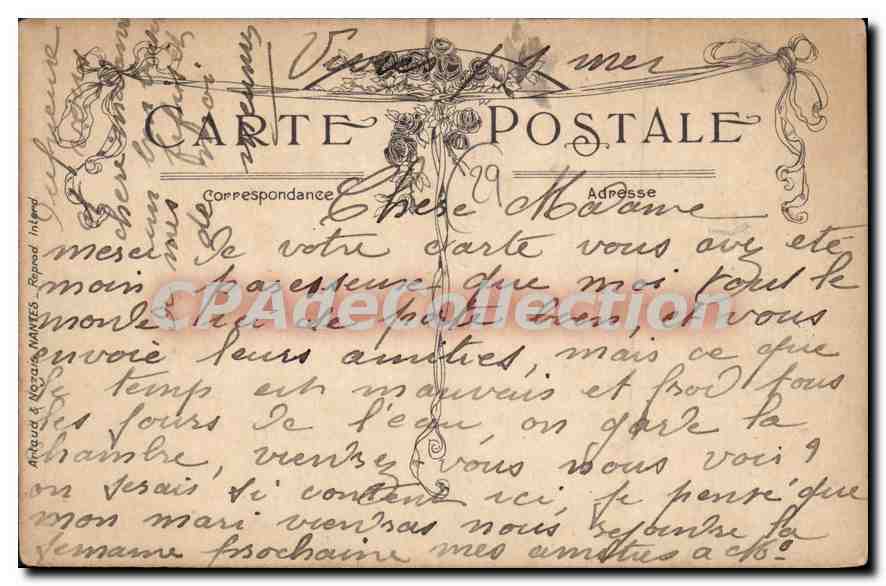 CARTE POSTALE
Correspondance
Adresse
29
Chere Madame
merci de votre carte vous avez eté
moin paresseuse que moi tous le
monde ici se porte bien, et vous
envoie leurs amities, mais ce que
le temp est mauvais et froid tous
les jours de l'eau on garde la
chambre, viendrez-vous nous voir?
on serais si content ici je pense que
mon mari viendras nous rejoindre la
semaine prochaine mes amities a
chere madame
mes
de moi
CPAdeCollection.com
Artaud & Nozais NANTES _ Reprod Interd